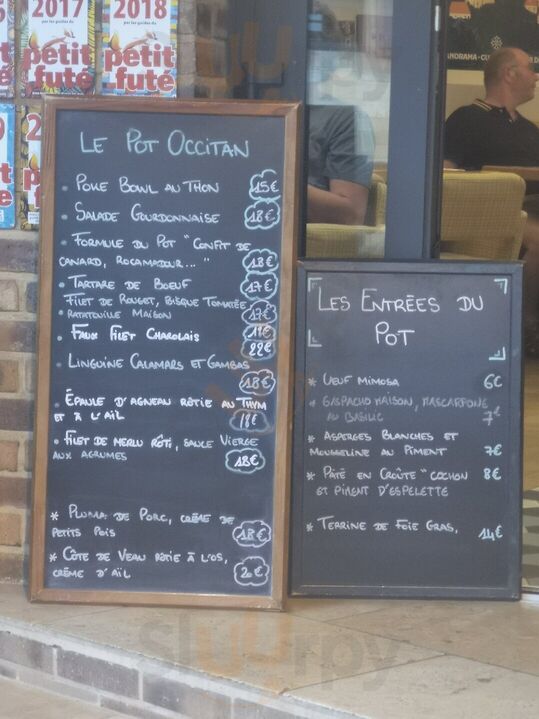 2017
par les guides du
petit
futé
2018
par les guides du
petit
futé
LE POT OCCITAN
POKE BOWL AU THON 15€
SALADE GOURDONNAISE 18€
FORMULE DU POT "CONFIT DE
CANARD, ROCAMADOUR... " 18€
TARTARE DE BOEUF 17€
FILET DE ROUGET, BISQUE TOMATÉE
RATATOUILLE MAISON 17€
FAUX FILET CHAROLAIS
22€
LINGUINE CALAMARS ET GAMBAS
18€
ÉPAULE D'AGNEAU RÔTIE AU THYM
ET À L'AIL 18€
FILET DE MERLU RÔTI, SAUCE VIERGE
AUX AGRUMES 18€
* PLUMA DE PORC, CRÈME DE
PETITS POIS 18€
* CÔTE DE VEAU RÔTIE À L'OS,
CRÈME D'AÏL 20€
LES ENTRÉES DU
POT
* OEUF MIMOSA 6€
* GASPACHO MAISON, MASCARPONE
AU BASILIC 7€
* ASPERGES BLANCHES ET
MOUSSELINE AU PIMENT 7€
* PÂTÉ EN CROÛTE "COCHON 8€
ET PIMENT D'ESPELETTE
* TERRINE DE FOIE GRAS. 14€
sluurpy